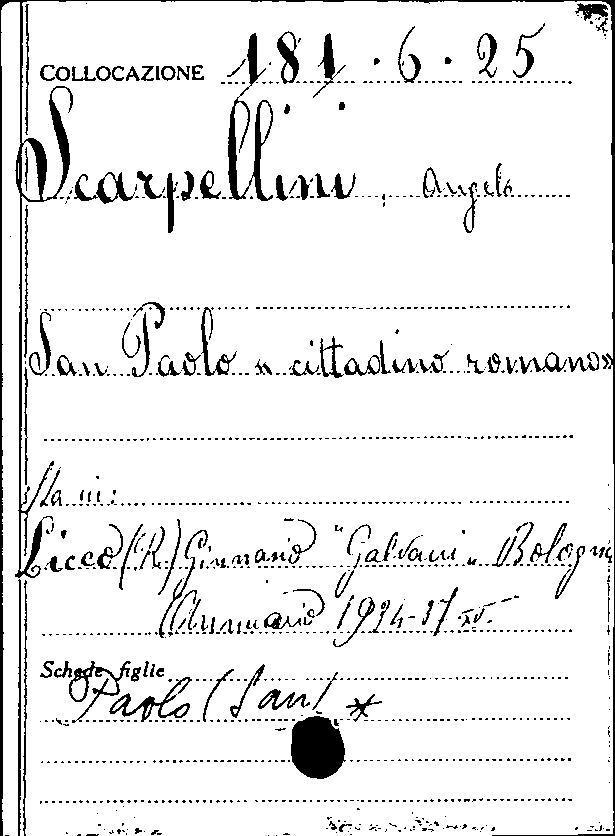 COLLOCAZIONE 181.6.25
Scarpellini, Angelo
San Paolo « cittadino romano»
Sta in:
Liceo (R.) Ginnasio "Galvani" Bologna
Annuario 1934-37 XV.
Schede figlie
Paolo (San) *